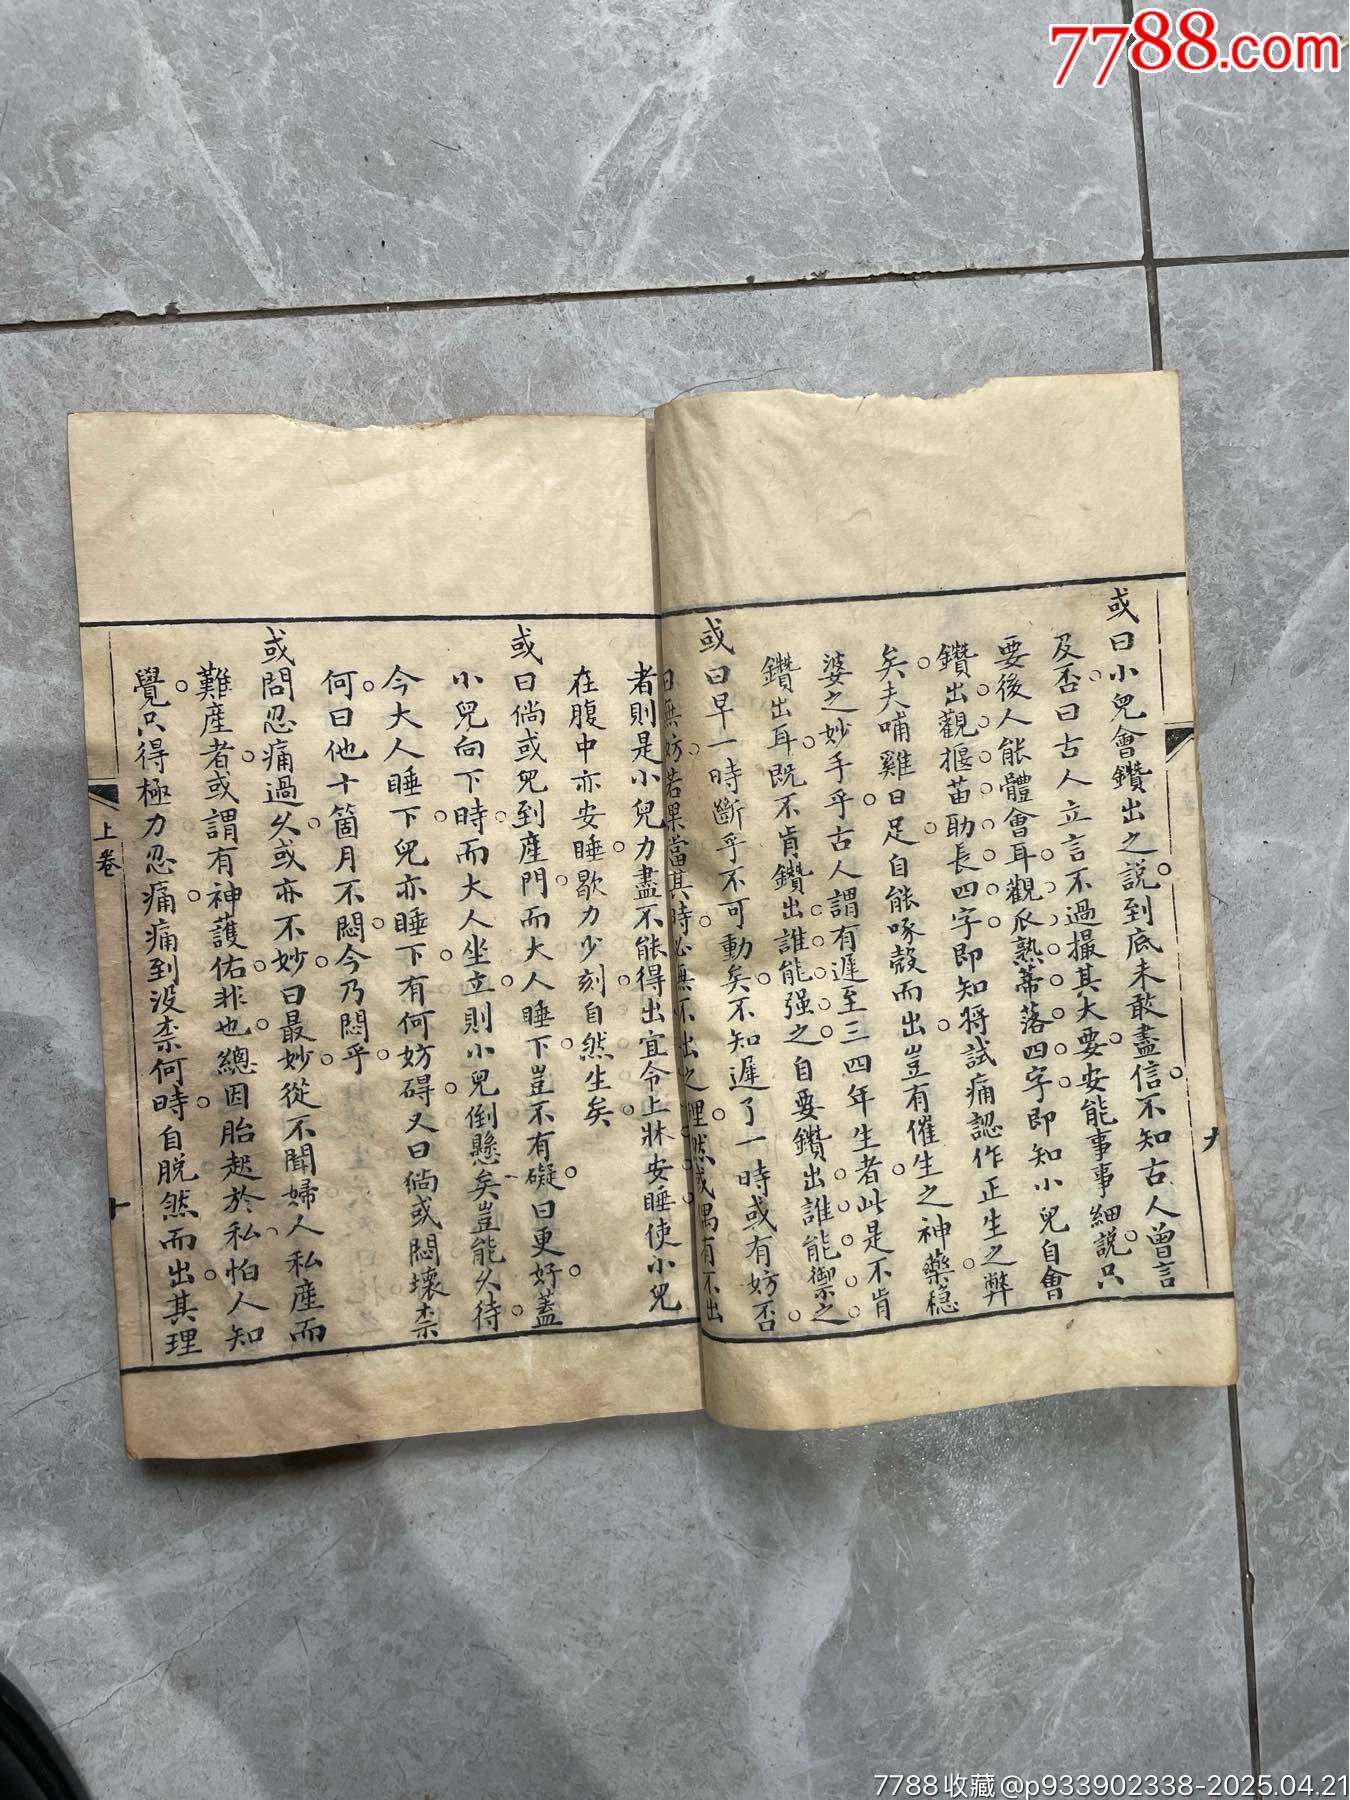 7788.com
或曰小兒會鑽出之說到底未敢盡信不知古人曾言
及否曰古人立言不過撮其大要安能事事細說只
要後人能體會耳觀瓜熟蒂落四字即知小兒自會
鑽出觀揠苗助長四字即知將試痛認作正生之弊
矣夫哺雞日足自能啄殼而出豈有催生之神藥穩
婆之妙手乎古人謂有遲至三四年生者此是不肯
鑽出耳既不肯鑽出誰能强之自要鑽出誰能禦之
或曰早一時斷乎不可動矣不知遲了一時或有妨否
曰無妨若果當其時必無不出之理然或偶有不出
者則是小兒力盡不能得出宜令上牀安睡使小兒
在腹中亦安睡歇力少刻自然生矣
或曰倘或兒到產門而大人睡下豈不有礙曰更好蓋
小兒向下時而大人坐立則小兒倒懸矣豈能久待
今大人睡下兒亦睡下有何妨碍又曰倘或悶壞柰
何曰他十箇月不悶今乃悶乎
或問忍痛過久或亦不妙曰最妙從不聞婦人私產而
難產者或謂有神護佑非也總因胎起於私怕人知
覺只得極力忍痛痛到沒柰何時自脫然而出其理
九
上卷
十
7788收藏@p933902338-2025.04.21